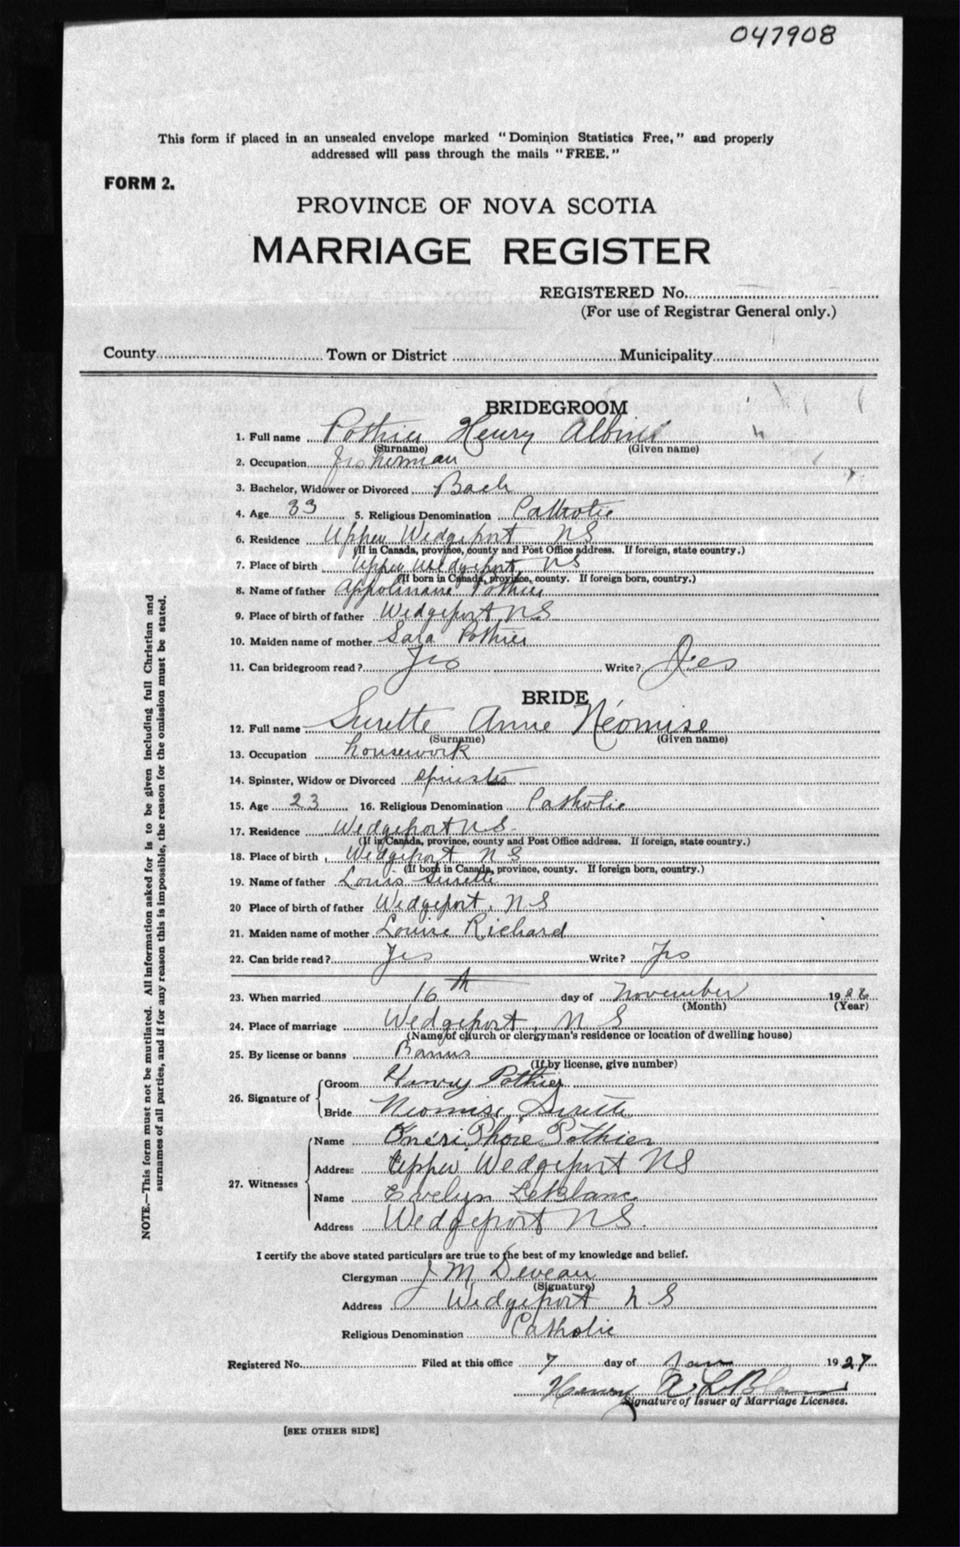 047908
This form if placed in an unsealed envelope marked "Dominion Statistics Free," and properly
addressed will pass through the mails "FREE."
FORM 2.
PROVINCE OF NOVA SCOTIA
MARRIAGE REGISTER
REGISTERED No.
(For use of Registrar General only.)
County Town or District Municipality
BRIDEGROOM
1. Full name Pothier Henry
(Surname) (Given name)
2. Occupation fisherman
3. Bachelor, Widower or Divorced Bach
4. Age 33 5. Religious Denomination Catholic
6. Residence Upper Wedgeport NS
(If in Canada, province, county and Post Office address. If foreign, state country.)
7. Place of birth Upper Wedgeport, NS
(If born in Canada, province, county. If foreign born, country.)
8. Name of father Appolinaire Pothier
9. Place of birth of father Wedgeport NS
10. Maiden name of mother Sara Pothier
11. Can bridegroom read? Yes Write? Yes
BRIDE
12. Full name Surette Anne Néomise
(Surname) (Given name)
13. Occupation housework
14. Spinster, Widow or Divorced spinster
15. Age 23 16. Religious Denomination Catholic
17. Residence Wedgeport NS
(If in Canada, province, county and Post Office address. If foreign, state country.)
18. Place of birth Wedgeport NS
(If born in Canada, province, county. If foreign born, country.)
19. Name of father Louis Surette
20 Place of birth of father Wedgeport, NS
21. Maiden name of mother Louise Richard
22. Can bride read? Yes Write? Yes
23. When married 16th day of November 1926
(Month) (Year)
24. Place of marriage Wedgeport, NS
(Name of church or clergyman's residence or location of dwelling house)
25. By license or banns Banns
(If by license, give number)
26. Signature of
Groom Henry Pothier
Bride Neomise Surette
27. Witnesses
Name Pothier
Address Upper Wedgeport NS
Name Evelyn LeBlanc
Address Wedgeport NS.
I certify the above stated particulars are true to the best of my knowledge and belief.
Clergyman J M Deveau
(Signature)
Address Wedgeport NS
Religious Denomination Catholic
Registered No. Filed at this office 7 day of Jan 1927
Henry A. LeBlanc
Signature of Issuer of Marriage Licenses.
[SEE OTHER SIDE]
NOTE.—This form must not be mutilated. All information asked for is to be given including full Christian and
surnames of all parties, and if for any reason this is impossible, the reason for the omission must be stated.